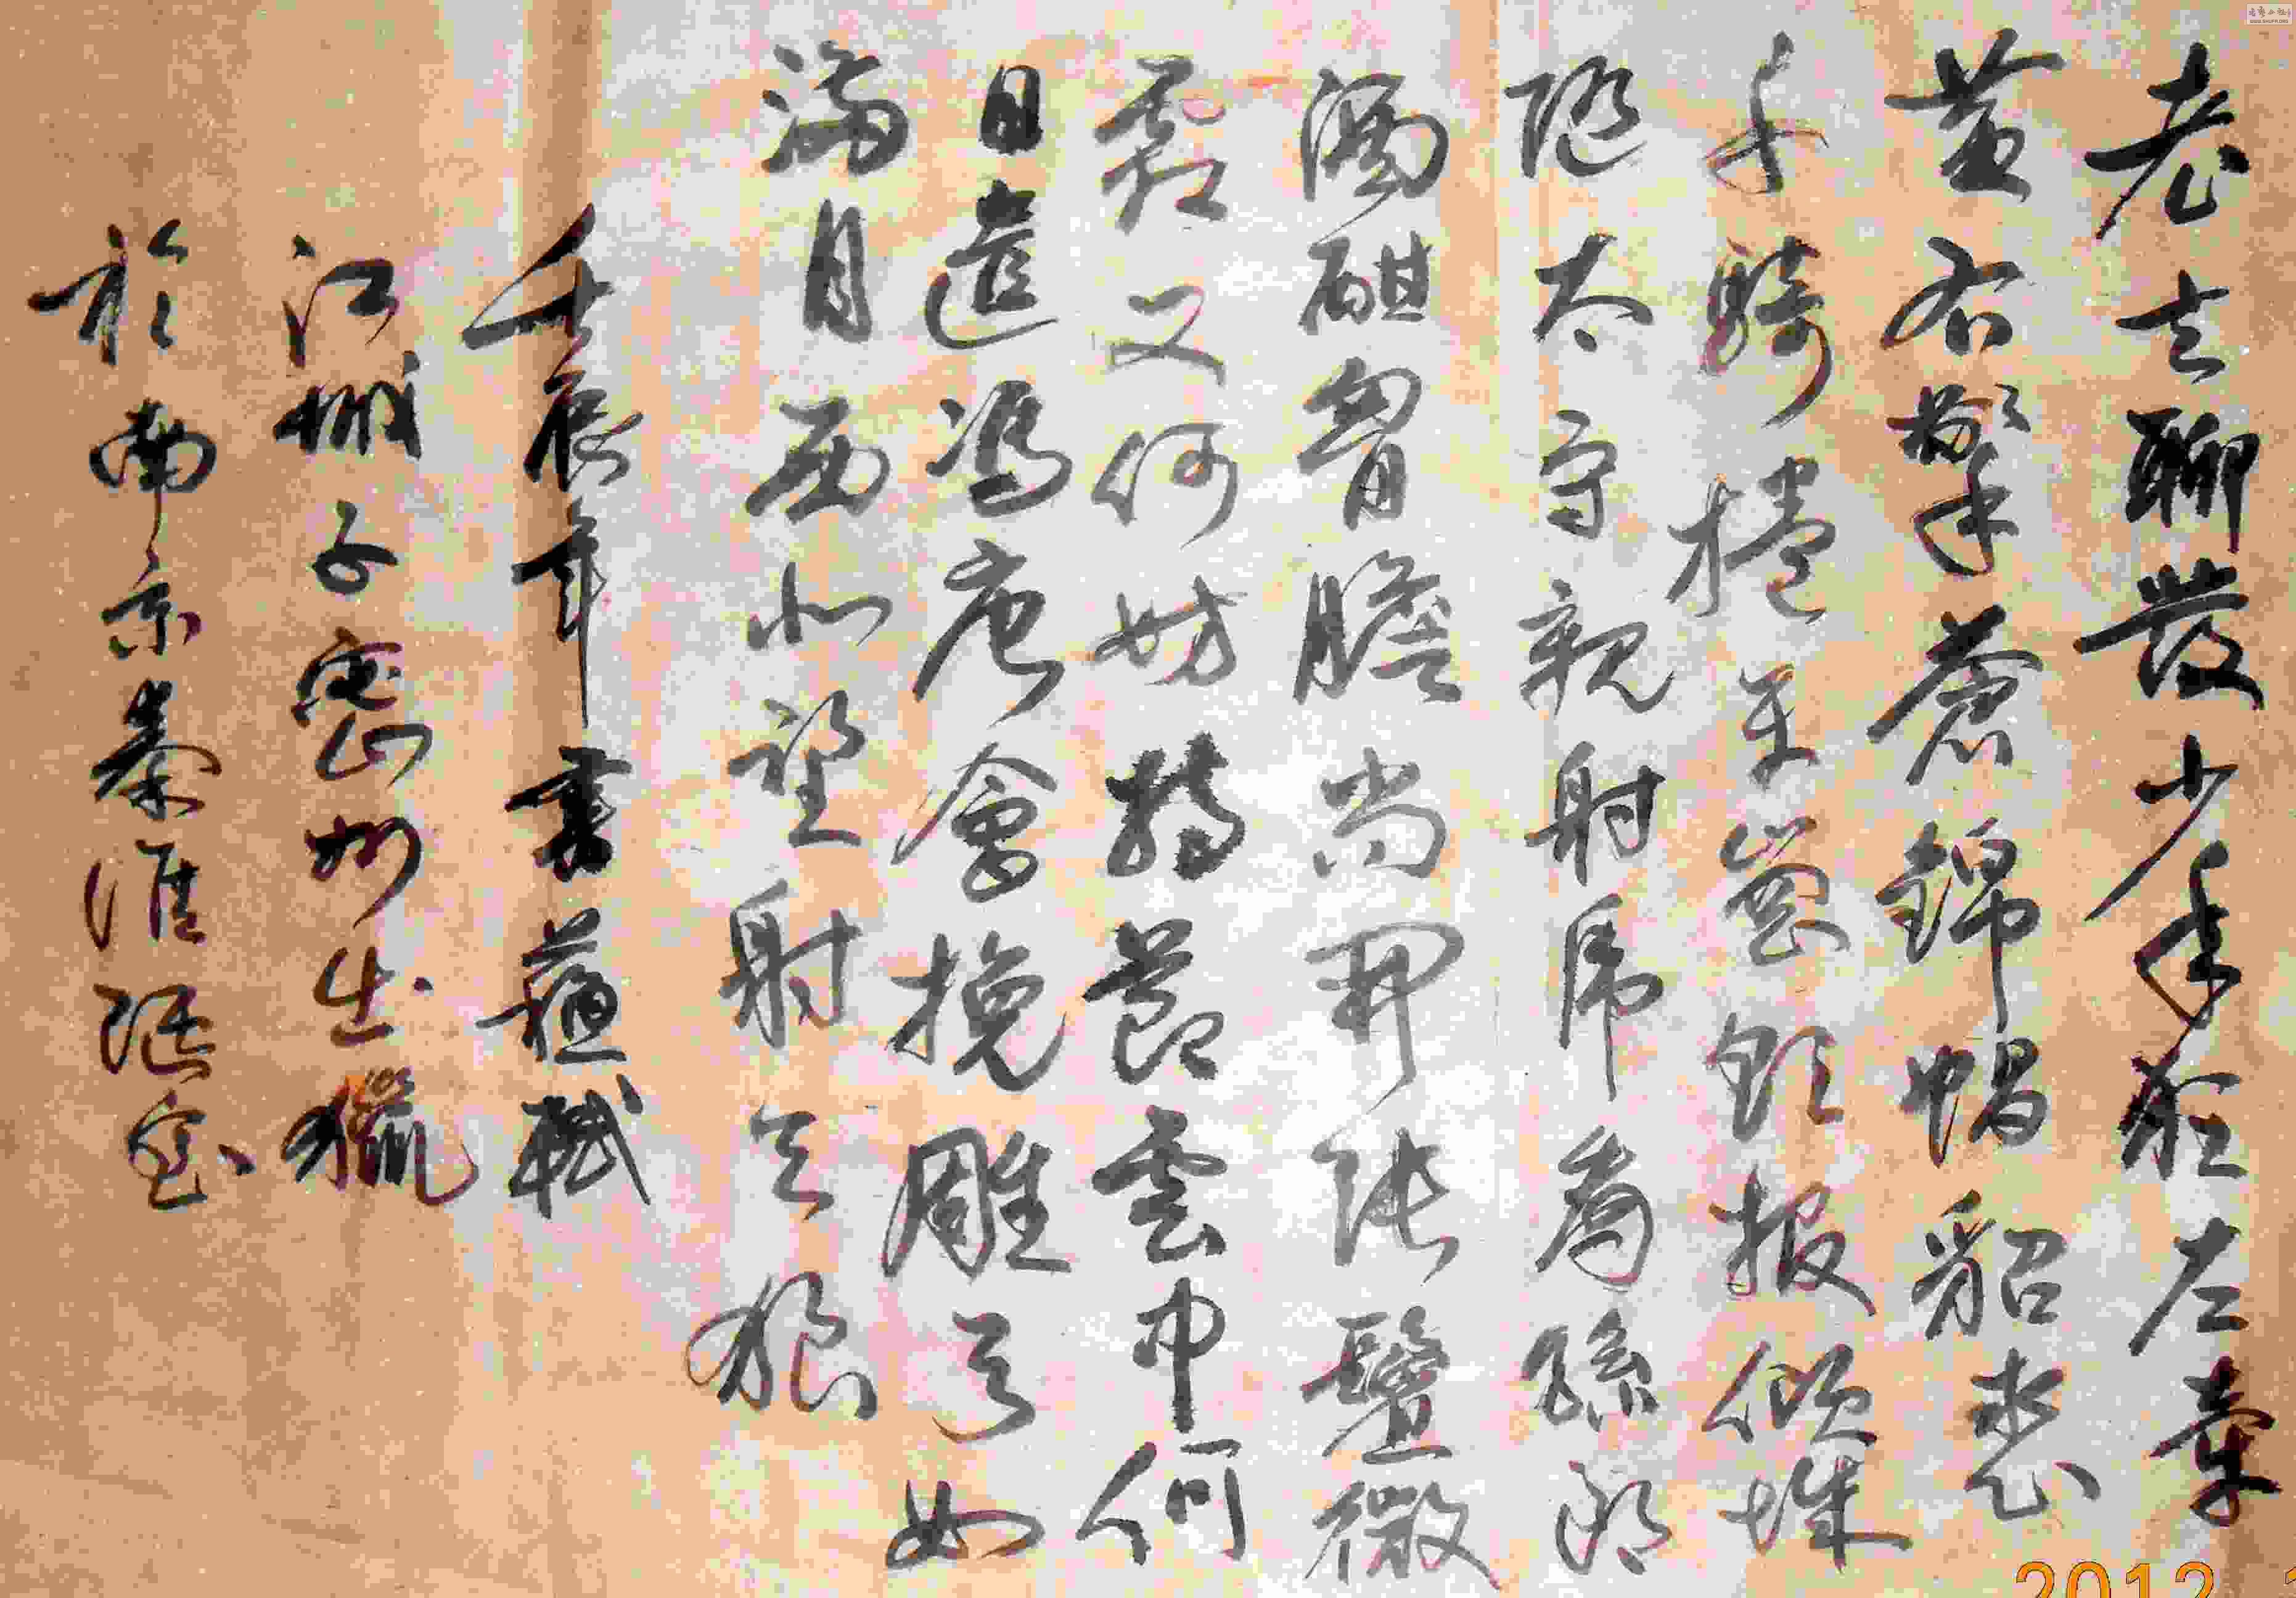 老夫聊發少年狂左牽
黃右擎蒼錦帽貂裘
千騎捲平崗欲報傾城
隨太守親射虎看孫郎
酒酣胸膽尚開張鬢微
霜又何妨持節雲中何
日遣馮唐會挽雕弓如
滿月西北望射天狼
壬辰年書蘇軾
江城子密州出獵
於南京秦淮
2012